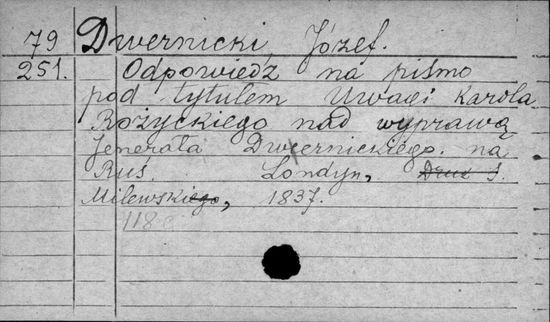 79 Dwernicki, Józef.
251. Odpowiedz na pismo
pod tytułem Uwagi Karola
Rożyckiego nad wyprawą
Jenerała Dwernickiego. na
Ruś Londyn, Druk J.
Milewskiego, 1837.
118